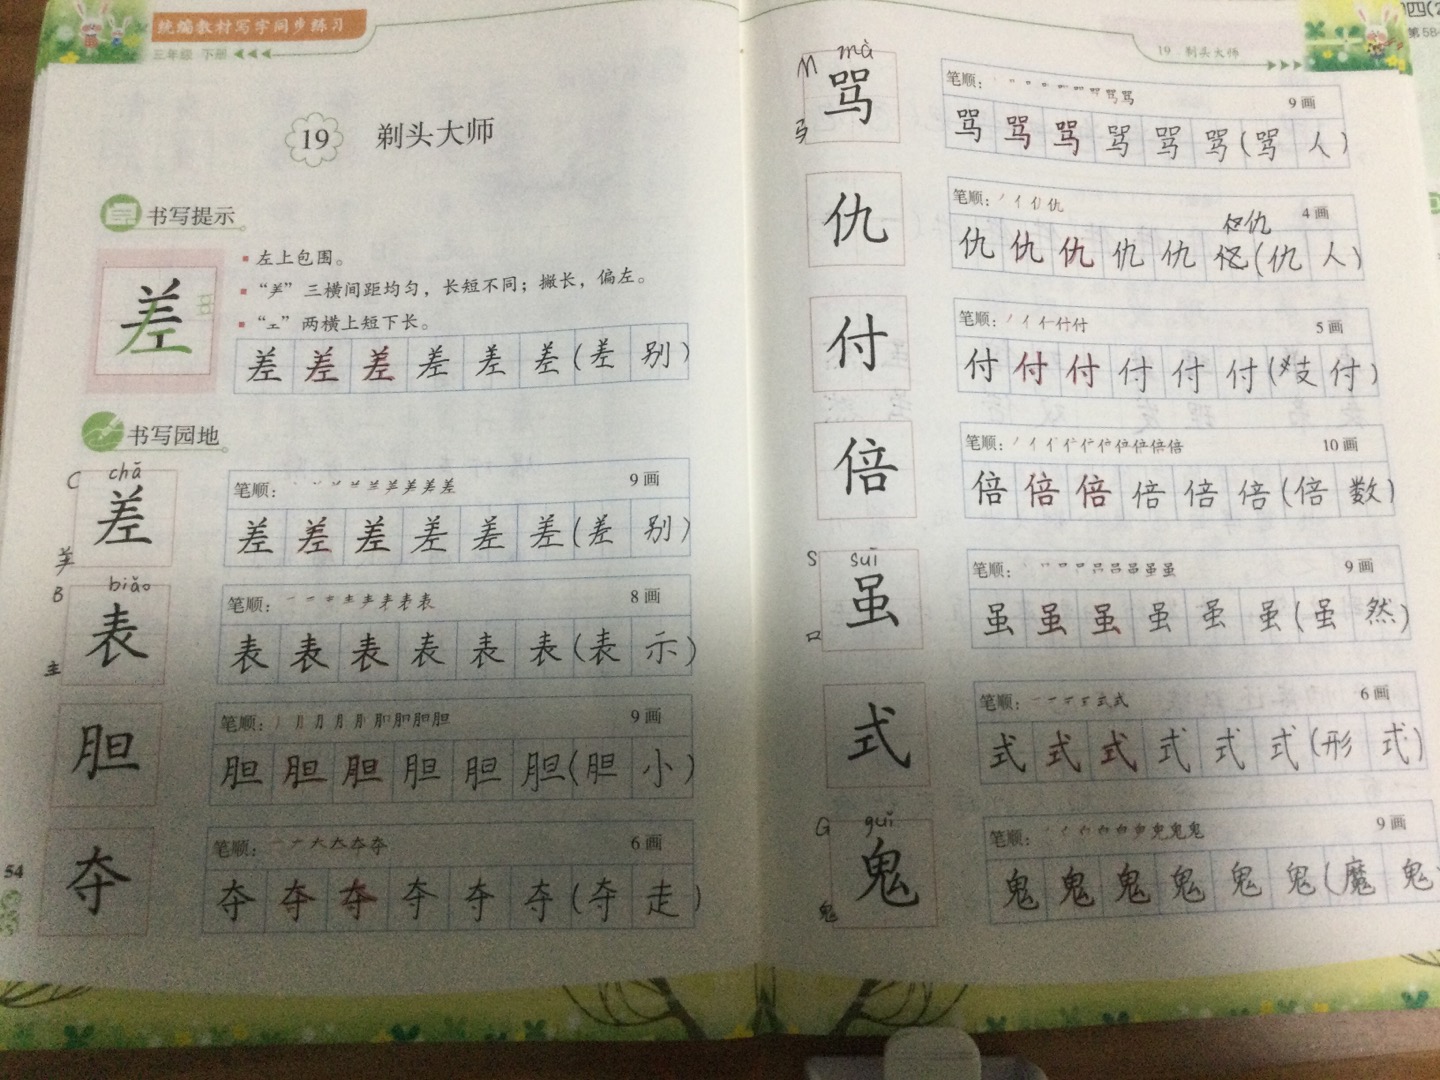 统编教材写字同步练习
三年级 下册
19 剃头大师
书写提示
差
左上包围。
“⺷”三横间距均匀，长短不同；撇长，偏左。
“工”两横上短下长。
差 差 差 差 差 差(差 别)
书写园地
C chā
差
羊
笔顺： 9画
差 差 差 差 差 差(差 别)
B biǎo
表
主
笔顺： 8画
表 表 表 表 表 表(表 示)
胆
笔顺： 9画
胆 胆 胆 胆 胆 胆(胆 小)
夺
笔顺： 6画
夺 夺 夺 夺 夺 夺(夺 走)
54
19．剃头大师
M mà
骂
马
笔顺： 9画
骂 骂 骂 骂 骂 骂(骂 人)
仇
笔顺： 4画
仇
仇 仇 仇 仇 仇 (仇 人)
付
笔顺： 5画
付 付 付 付 付 付(支 付)
倍
笔顺： 10画
倍 倍 倍 倍 倍 倍(倍 数)
S suī
虽
口
笔顺： 9画
虽 虽 虽 虽 虽 虽(虽 然)
式
笔顺： 6画
式 式 式 式 式 式(形 式)
G guǐ
鬼
鬼
笔顺： 9画
鬼 鬼 鬼 鬼 鬼 鬼(魔 鬼
第58